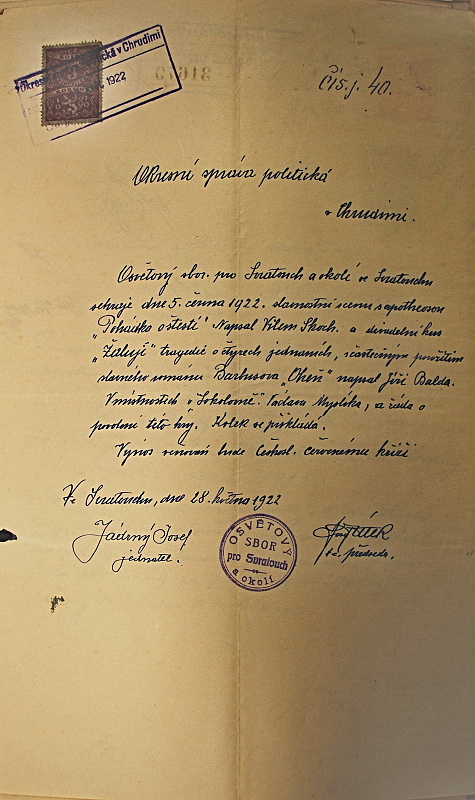 Okres ická v Chrudimi
1922
31679
Čís. j. 40.
Okresní správa politická
v Chrudimi.
Osvětový sbor pro Svratouch a okolí ve Svratouchu
sehraje dne 5. června 1922. slavnostní scenu s apotheosou
"Pohádka o štěstí" Napsal Klem. Skoch. a divadelní kus
"Žaluji" tragedie o čtyrech jednáních, s částečným použitím
slavného románu Barbusova "Oheň" napsal Jiří Balda.
V místnostech v Sokolovně Václava Myslíka, a žádá o
povolení této hry. Kolek se přikládá.
Výnos věnován bude Českosl. červenému kříži
Ve Svratouchu, dne 28. května 1922
Jádrný Josef
jednatel.
OSVĚTOVÝ
SBOR
pro Svratouch
a okolí
předseda.